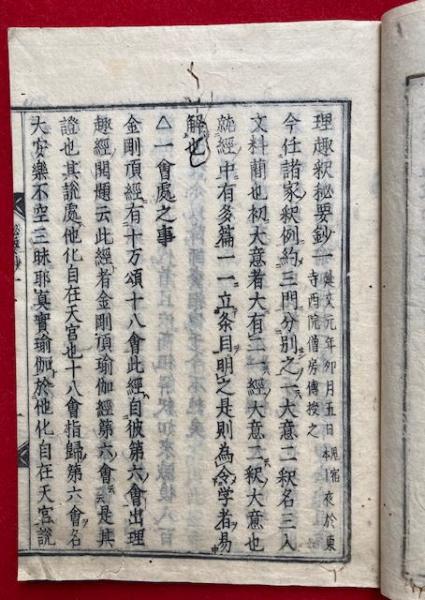 理趣釋秘要鈔一 延文元年卯月五日夜於東
寺西院僧房傳授之
今任諸家釋例約三門分別之一大意二釋名三入
文料蕳也初大意者大有二一經大意二釋大意也
就經中有多篇一一立条目明之是則為令学者易
解也
△一會處之事
金剛頂經有十万頌十八會此經自彼第六會出理
趣經開題云此經者金剛頂瑜伽經第六會是其
證也其說處他化自在天宮也十八會指歸第六會名
大安樂不空三昧耶真實瑜伽於他化自在天宮說